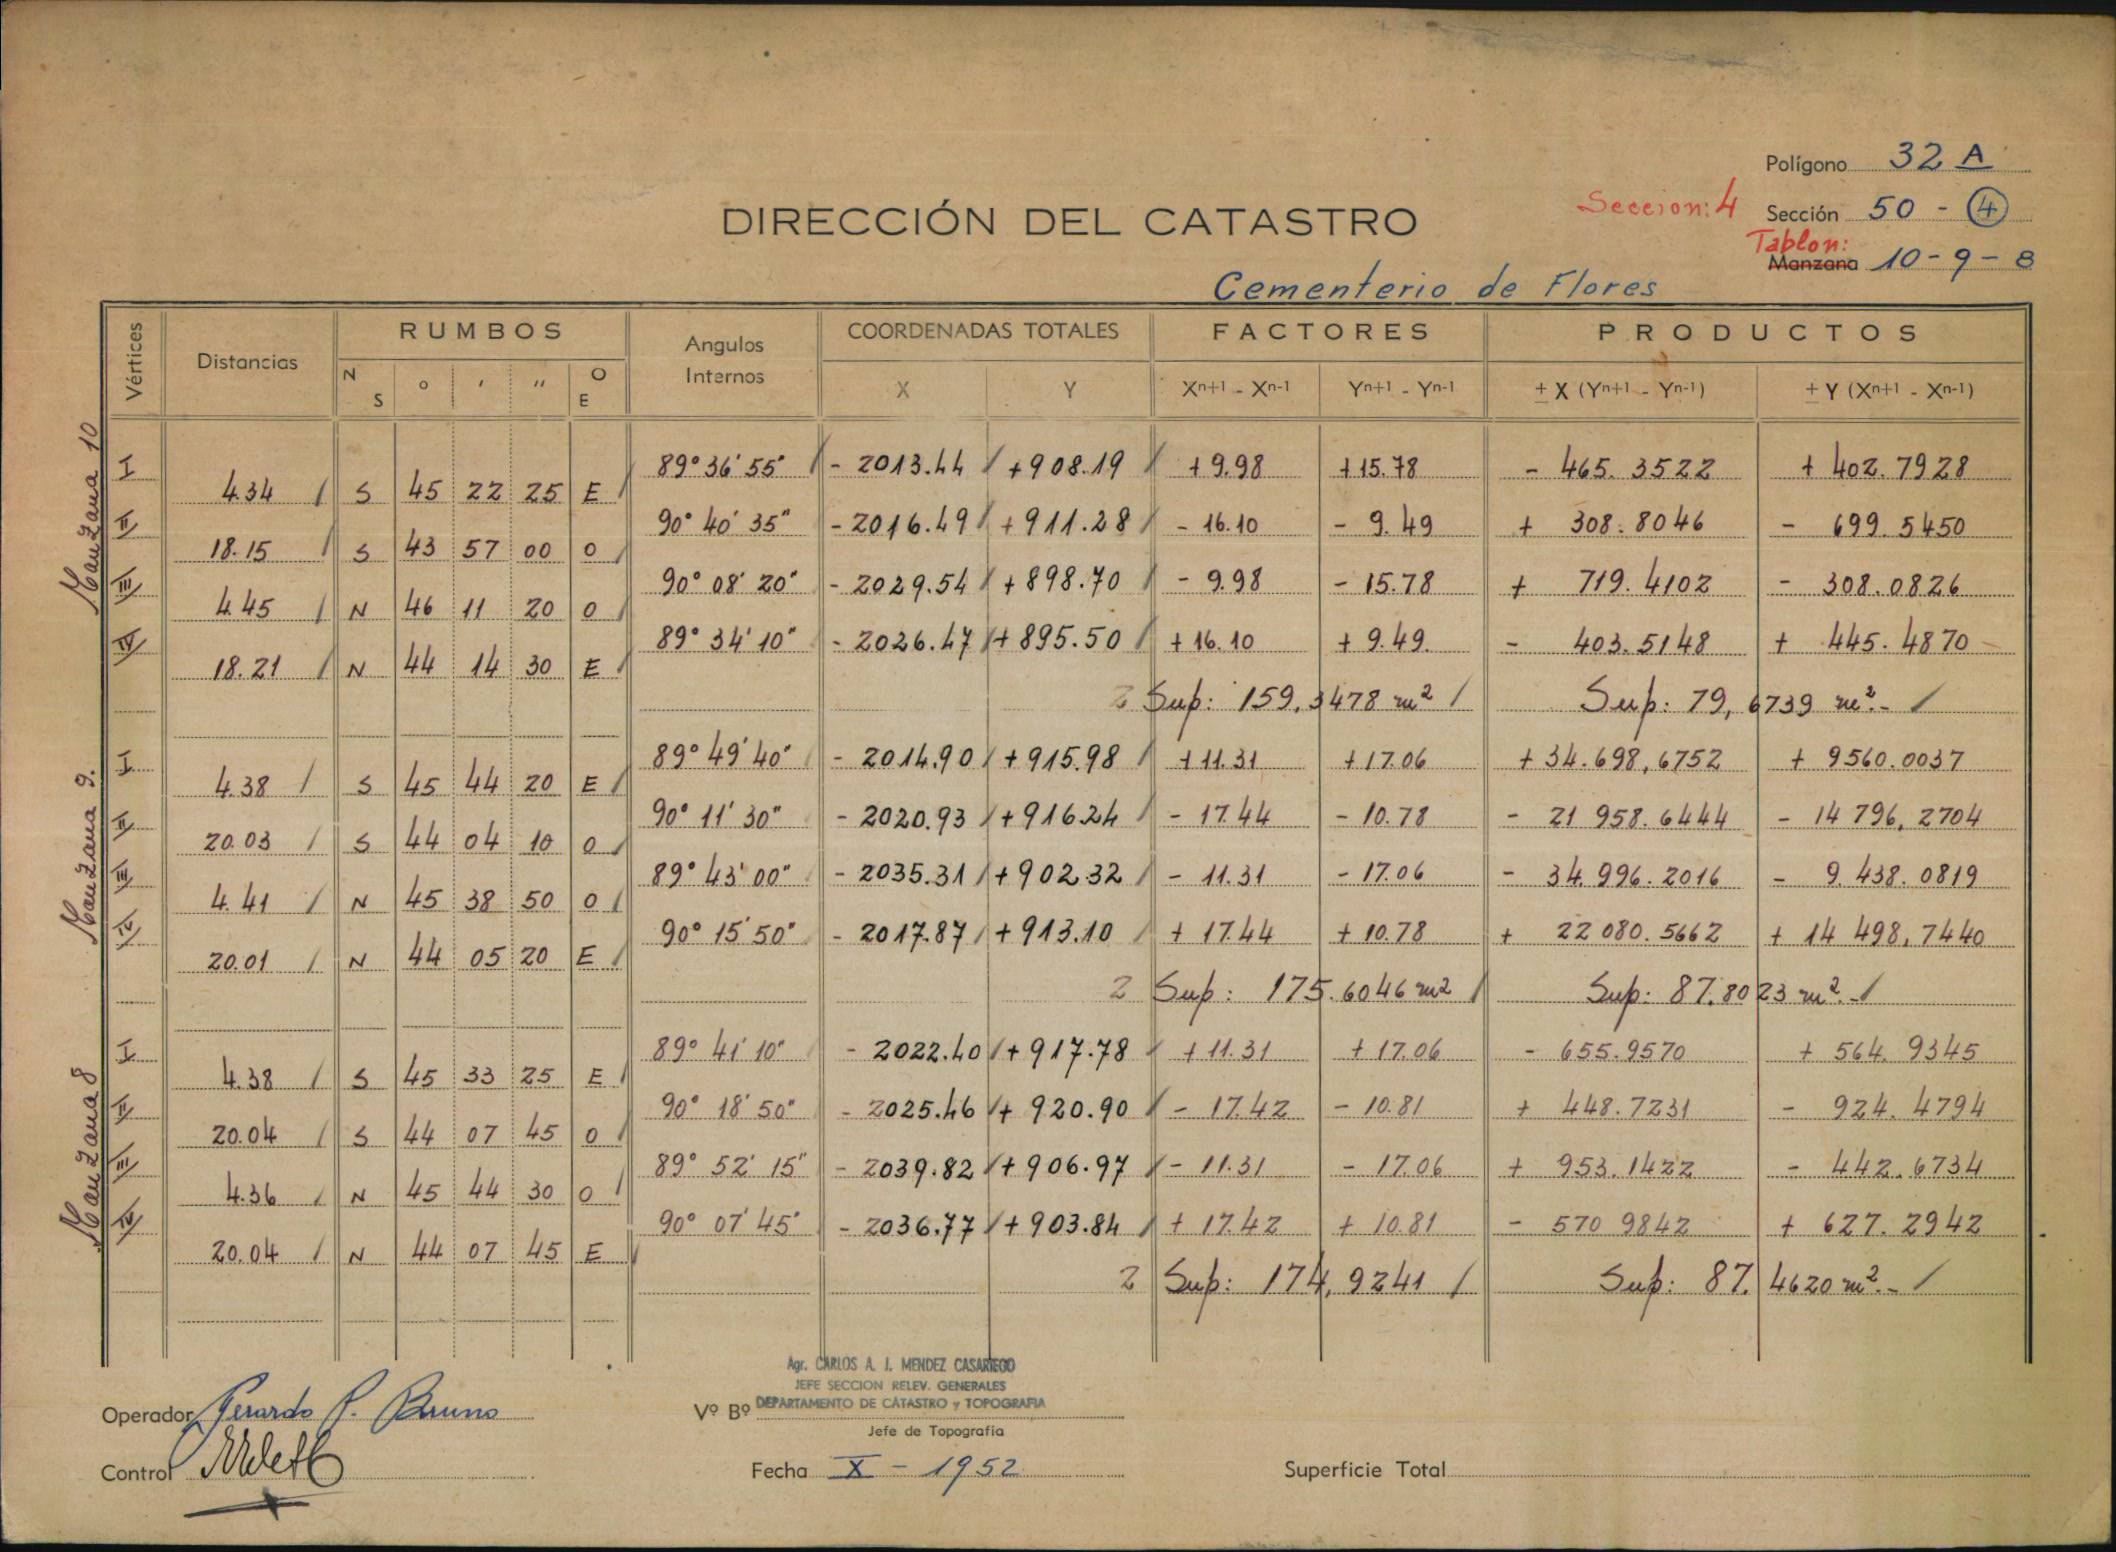 Polígono 32 A
Seccion: 4 Sección 50 - 4
DIRECCIÓN DEL CATASTRO
Tablon:
Manzana 10 - 9 - 8
Cementerio de Flores
Vértices Distancias RUMBOS Angulos Internos COORDENADAS TOTALES FACTORES PRODUCTOS
N S ° ' " O E X Y Xn+1 - Xn-1 Yn+1 - Yn-1 ± X (Yn+1 - Yn-1) ± Y (Xn+1 - Xn-1)
Manzana 10
I 89° 36' 55" - 2013.44 + 908.19 + 9.98 + 15.78 - 465.3522 + 402.7928
4.34 S 45 22 25 E
II 90° 40' 35" - 2016.49 + 911.28 - 16.10 - 9.49 + 308.8046 - 699.5450
18.15 S 43 57 00 O
III 90° 08' 20" - 2029.54 + 898.70 - 9.98 - 15.78 + 719.4102 - 308.0826
4.45 N 46 11 20 O
IV 89° 34' 10" - 2026.47 + 895.50 + 16.10 + 9.49. - 403.5148 + 445.4870
18.21 N 44 14 30 E
2 Sup: 159,3478 m² Sup: 79,6739 m².-
Manzana 9.
I 89° 49' 40" - 2014.90 + 915.98 + 11.31 + 17.06 + 34.698,6752 + 9560.0037
4.38 S 45 44 20 E
II 90° 11' 30" - 2020.93 + 916.24 - 17.44 - 10.78 - 21 958.6444 - 14 796,2704
20.03 S 44 04 10 O
III 89° 43' 00" - 2035.31 + 902.32 - 11.31 - 17.06 - 34.996.2016 - 9.438.0819
4.41 N 45 38 50 O
IV 90° 15' 50" - 2017.87 + 913.10 + 17.44 + 10.78 + 22 080.5662 + 14 498,7440
20.01 N 44 05 20 E
2 Sup: 175.6046 m² Sup: 87.8023 m².-
Manzana 8
I 89° 41' 10" - 2022.40 + 917.78 + 11.31 + 17.06 - 655.9570 + 564.9345
4.38 S 45 33 25 E
II 90° 18' 50" - 2025.46 + 920.90 - 17.42 - 10.81 + 448.7231 - 924.4794
20.04 S 44 07 45 O
III 89° 52' 15" - 2039.82 + 906.97 - 11.31 - 17.06 + 953.1422 - 442.6734
4.36 N 45 44 30 O
IV 90° 07' 45" - 2036.77 + 903.84 + 17.42 + 10.81 - 570 9842 + 627.2942
20.04 N 44 07 45 E
2 Sup: 174,9241 Sup: 87.4620 m².-
Agr. CARLOS A. J. MENDEZ CASARIEGO
JEFE SECCION RELEV. GENERALES
Operador Gerardo P. Bruno Vº Bº DEPARTAMENTO DE CATASTRO y TOPOGRAFIA
Jefe de Topografía
Control Fecha X - 1952 Superficie Total